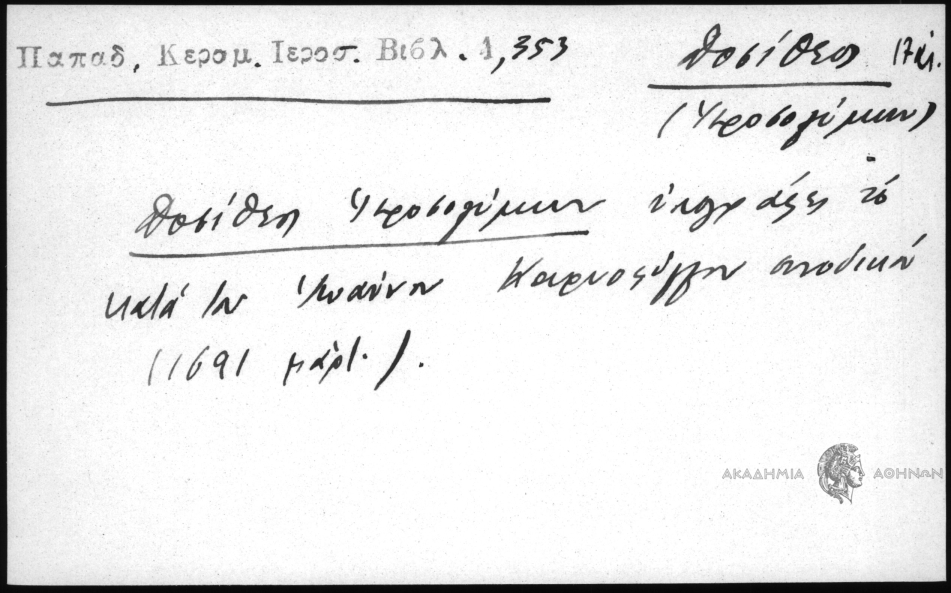 Παπαδ. Κεραμ. Ιεροσ. Βιβλ. 1,353
Δοσίθεος 17 αἰ.
(Ἱεροσολύμων)
Δοσίθεος Ἱεροσολύμων ὑπογράψας τὸ
κατὰ τοῦ Ἰωάννου Καρυοφύλλου συνοδικὸν
(1691 μάρτ.).
ΑΚΑΔΗΜΙΑ ΑΘΗΝΩΝ